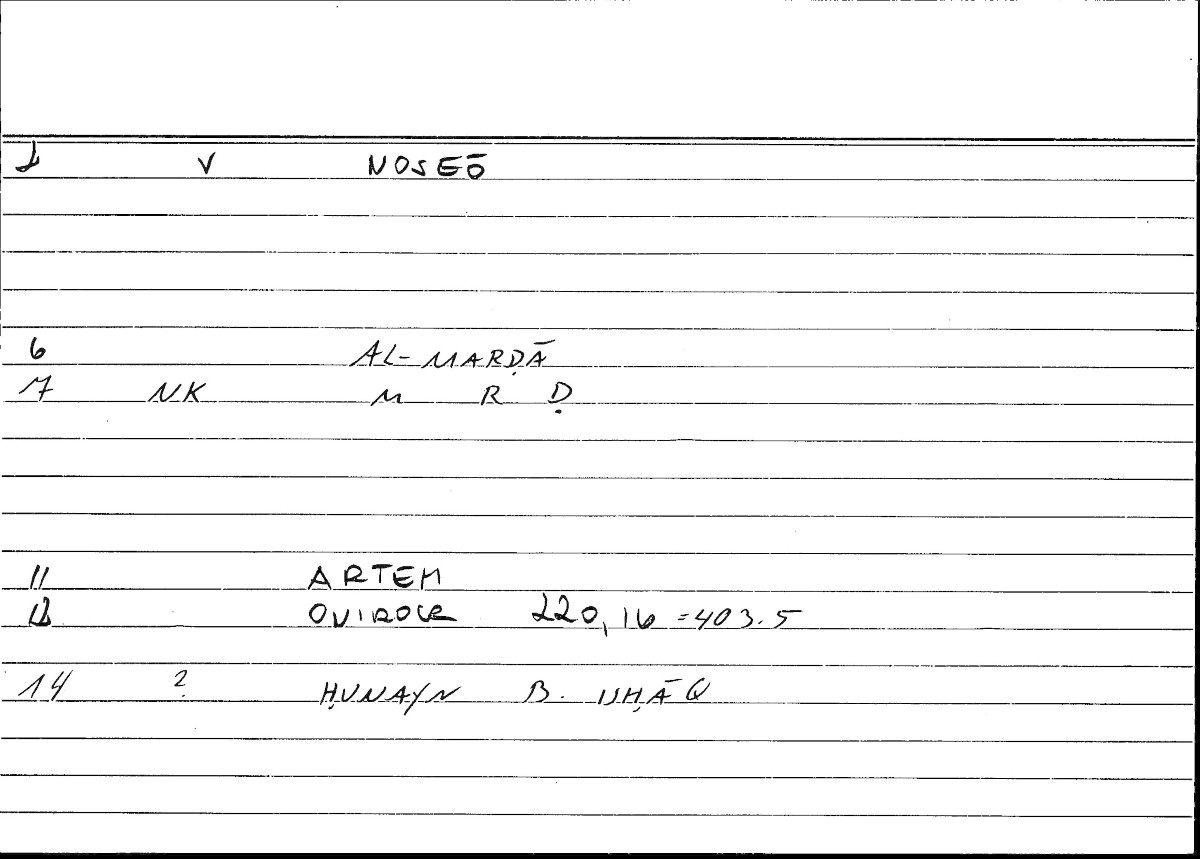 1 V NOSEŌ
6 AL-MARḌĀ
7 NK M R Ḍ
11 ARTEM
12 ONIROCR 220,16 =403.5
14 ? ḤUNAYN B. ISḤĀQ